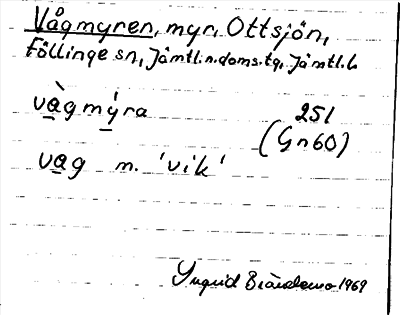 Vågmyren, myr, Ottsjön,
Föllinge sn, Jämtl.n.doms.tg, Jämtl.l.
và̱gmý̱ra 251
(Gn60)
va̱g m. 'vik'
Ingrid 1969